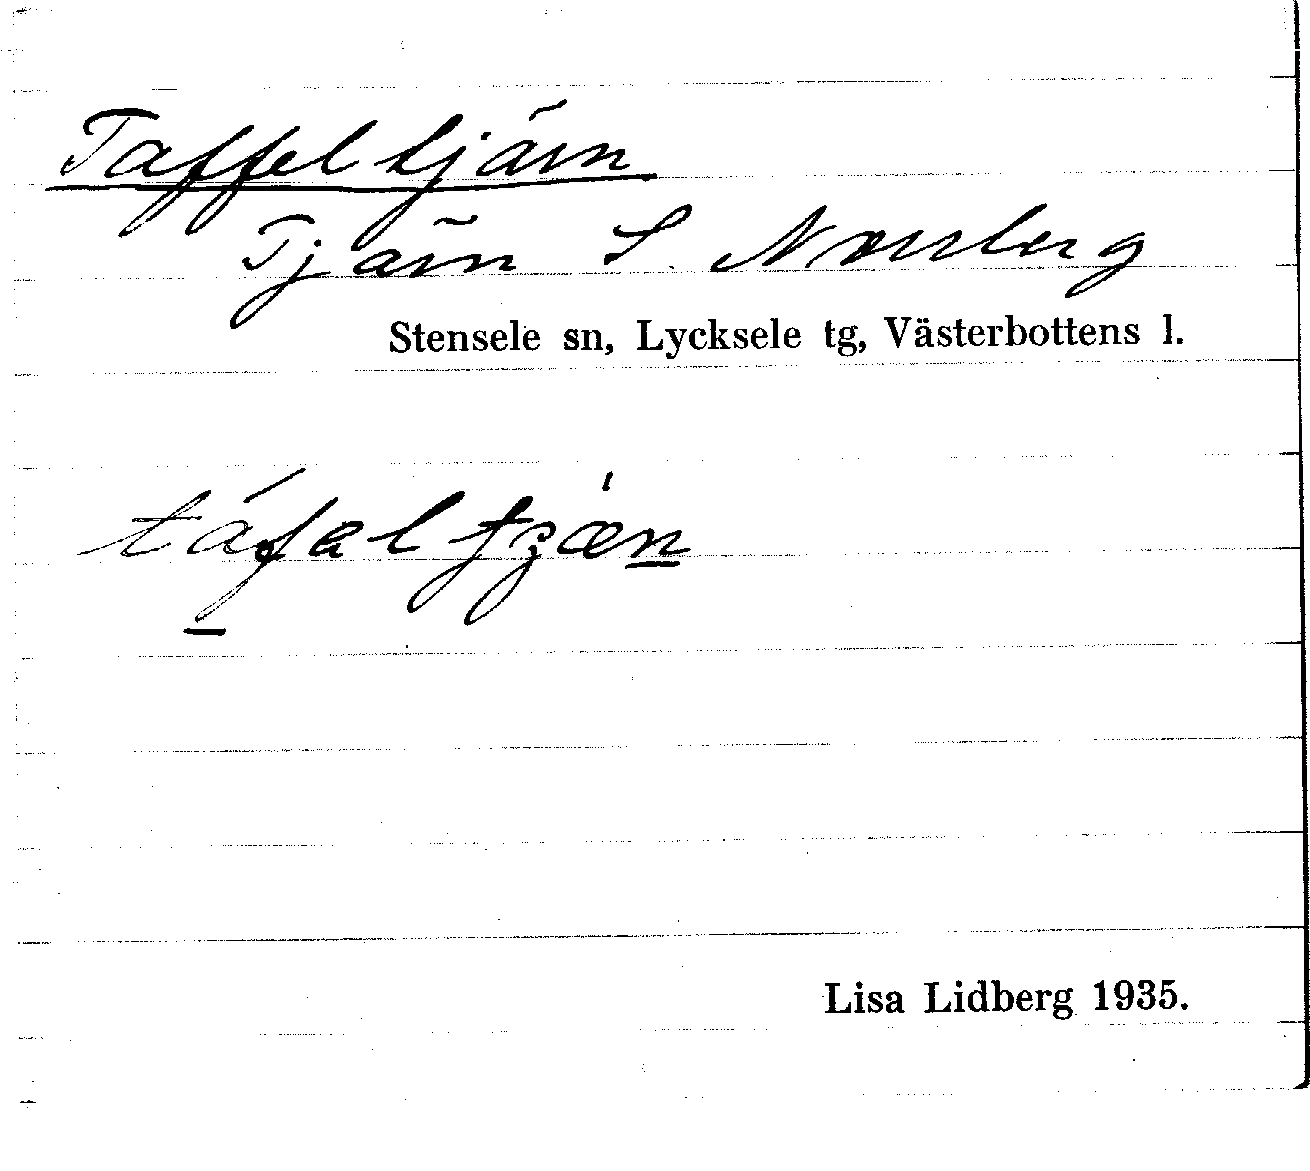 Taffeltjärn
Tjärn S. Norrberg
Stensele sn, Lycksele tg, Västerbottens l.
táfəl tjæ̀n
Lisa Lidberg 1935.